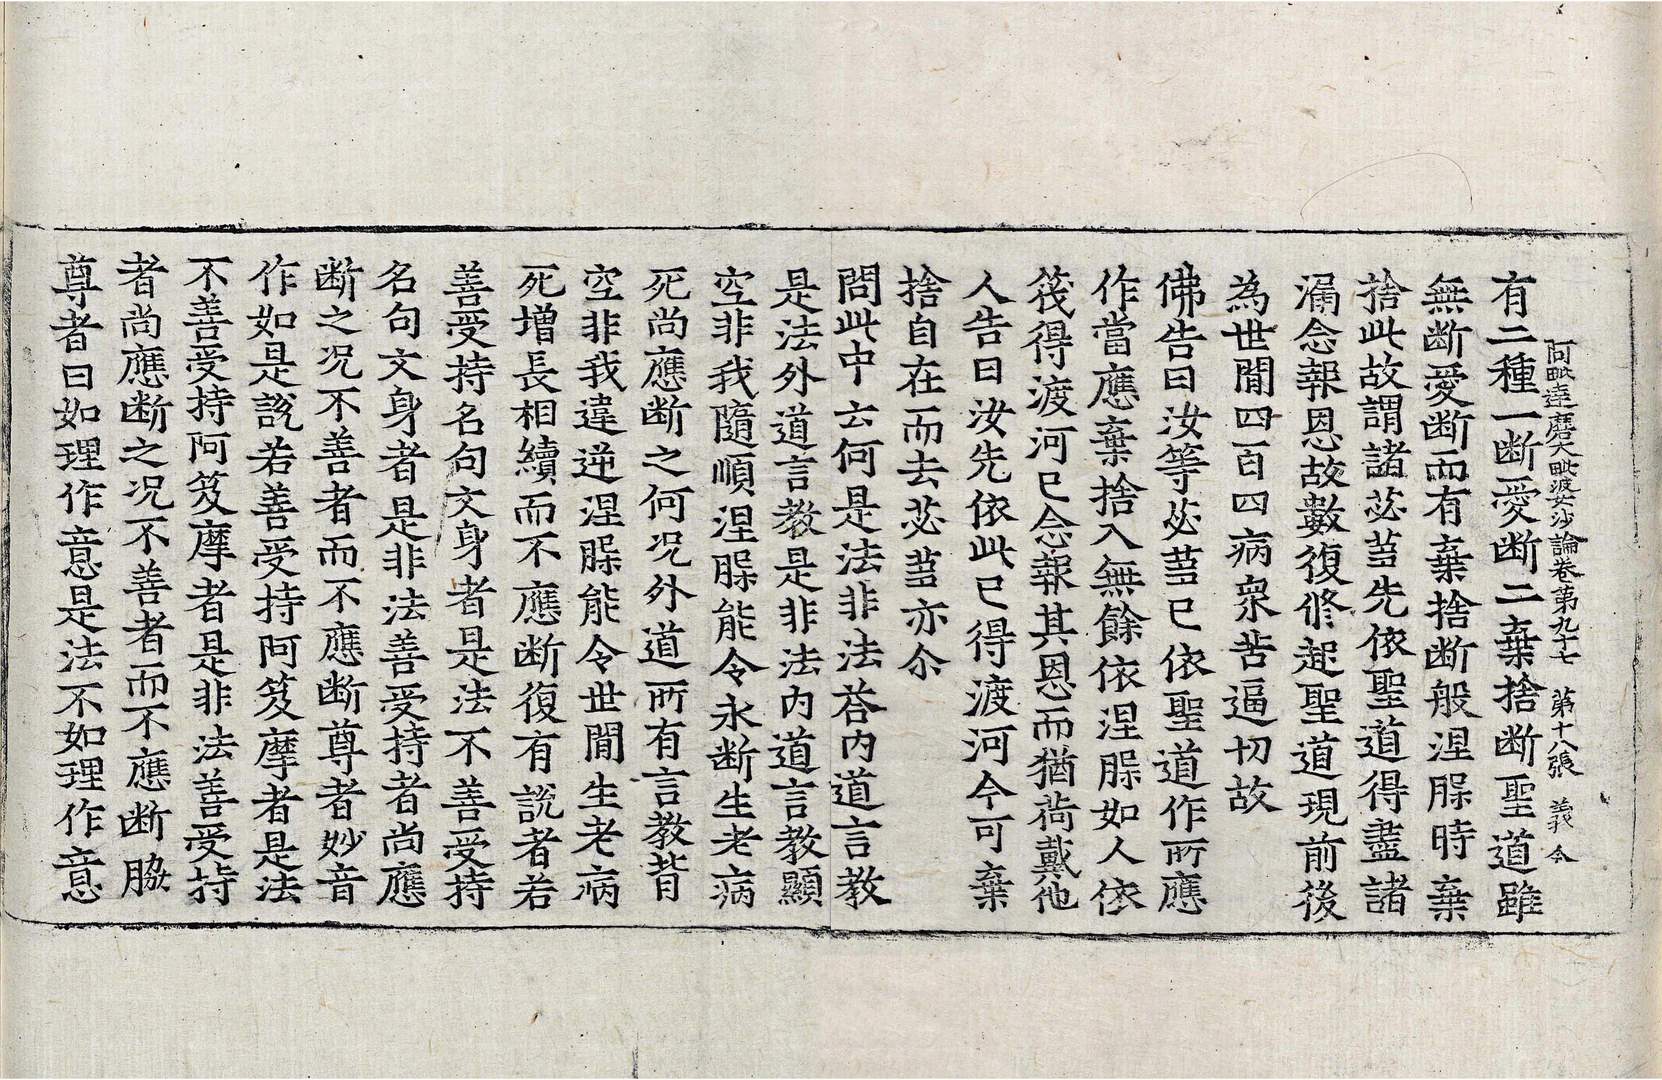 阿毗達磨大毗婆沙論卷第九十七　第十八張　義 令
有二種一断愛断二棄捨断聖道雖
無断愛断而有棄捨断般涅槃時棄
捨此故謂諸苾蒭先依聖道得盡諸
漏念報恩故數復修起聖道現前後
為世閒四百四病衆苦逼切故
佛告曰汝等苾蒭已依聖道作所應
作當應棄捨入無餘依涅槃如人依
筏得渡河已念報其恩而猶荷戴他
人告曰汝先依此已得渡河今可棄
捨自在而去苾蒭亦尒
問此中云何是法非法荅内道言教
是法外道言教是非法内道言教顯
空非我隨順涅槃能令永断生老病
死尚應断之何况外道所有言教背
空非我違逆涅槃能令世閒生老病
死增長相續而不應断復有說者若
善受持名句文身者是法不善受持
名句文身者是非法善受持者尚應
断之况不善者而不應断尊者妙音
作如是說若善受持阿笈摩者是法
不善受持阿笈摩者是非法善受持
者尚應断之况不善者而不應断脇
尊者曰如理作意是法不如理作意